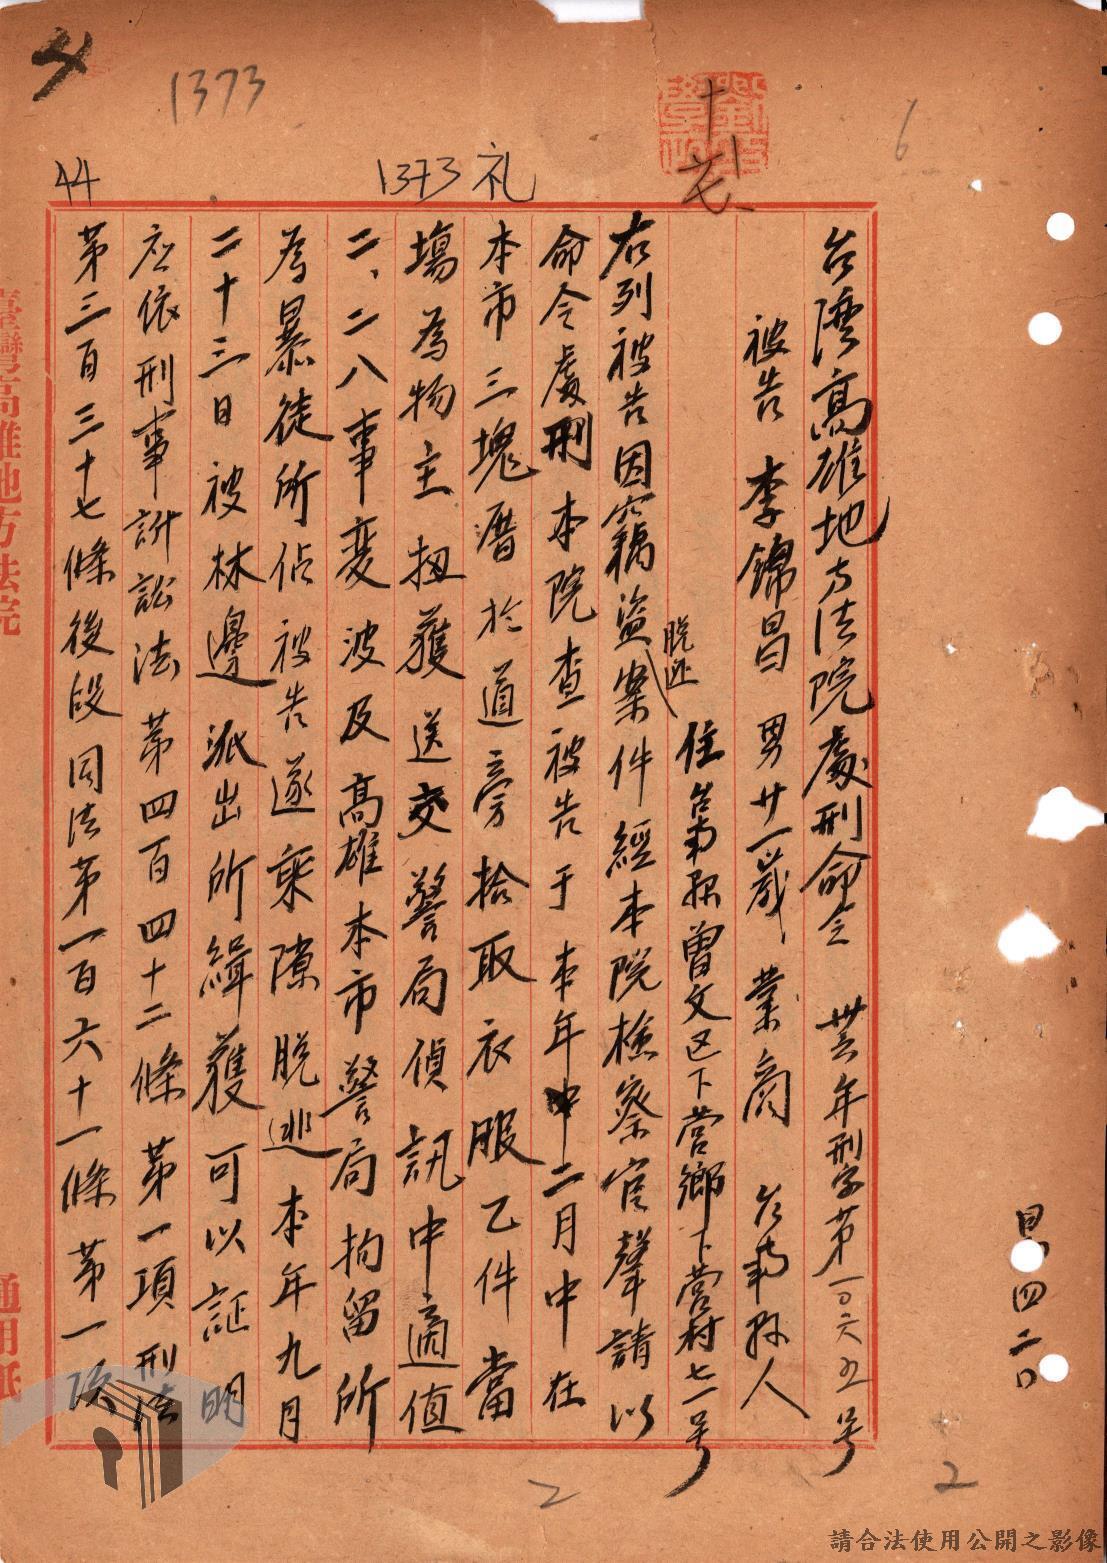 台灣高雄地方法院處刑命令 卅六年刑字第一〇六五号
被告 李錦昌 男 廿一歲 業商 台南縣人
住台南縣曽文区下营鄉下营村七一号
右列被告因竊盜脫逃案件經本院檢察官聲請以
命令處刑本院查被告于本年二月中在
本市三塊厝於道旁拾取衣服乙件當
場為物主扭獲送交警局偵訊中適值
二、二八事変波及高雄本市警局拘留所
為暴徒所佔被告遂乘隙脫逃本年九月
二十三日被林邊派出所緝獲可以証明
应依刑事訴訟法第四百四十二條第一項刑法
第三百三十七條後段同法第一百六十一條第一項
1373
1373 礼
44
6
2
2
四二〇
臺灣高雄地方法院
通用紙
請合法使用公開之影像